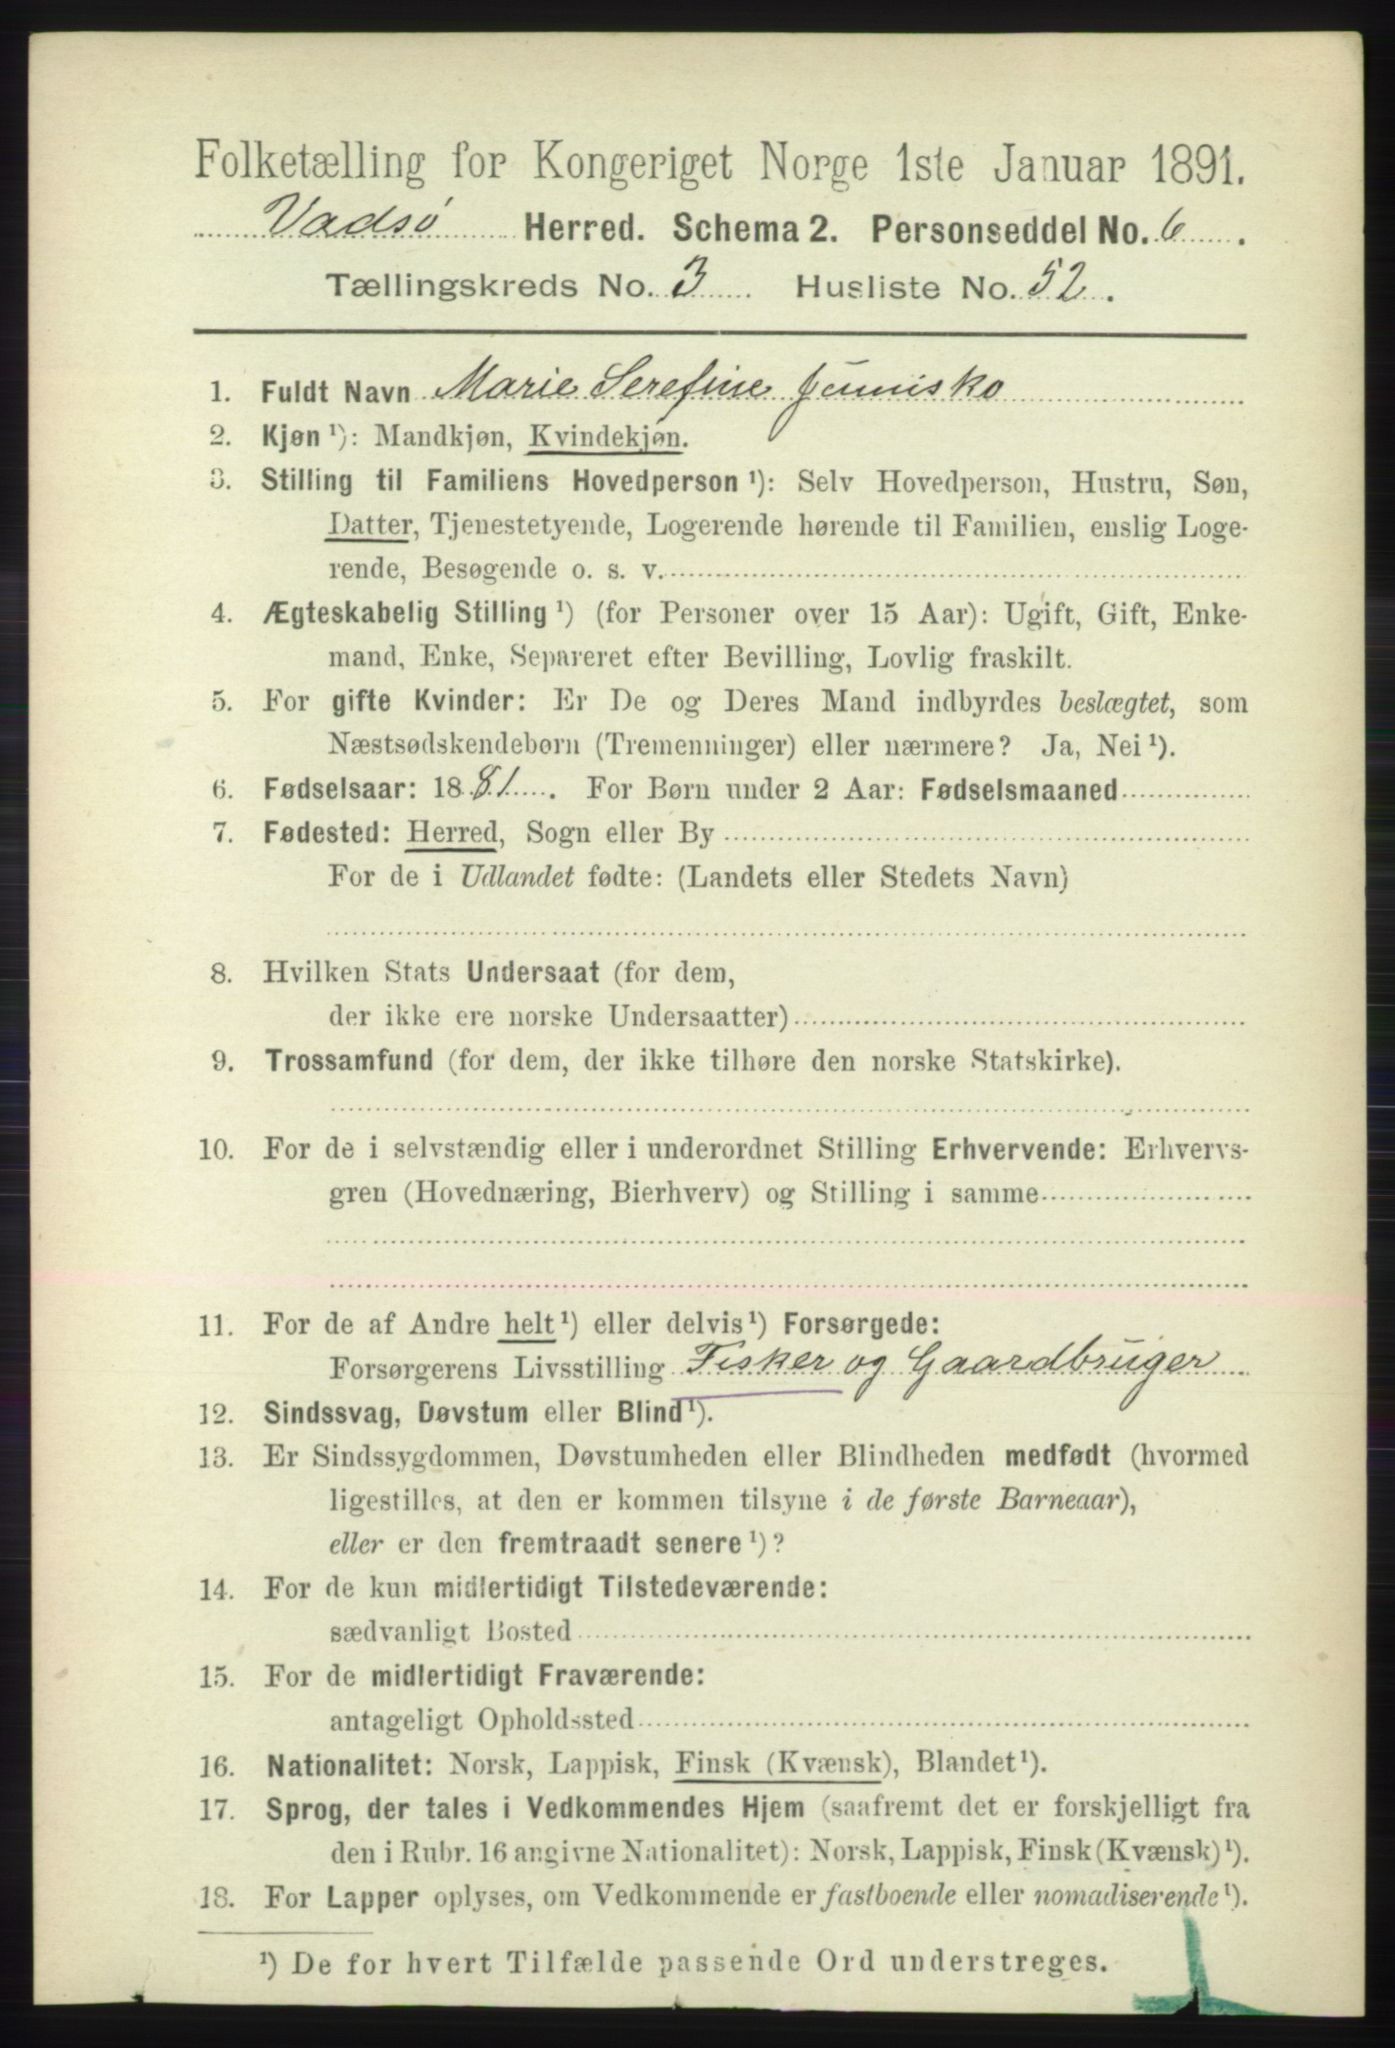 Folketælling for Kongeriget Norge 1ste Januar 1891.
Vadsø Herred. Schema 2. Personseddel No. 6.
Tællingskreds No. 3 Husliste No. 52.
1. Fuldt Navn Marie Serefine Junisko
2. Kjøn ¹): Mandkjøn, Kvindekjøn.
3. Stilling til Familiens Hovedperson ¹): Selv Hovedperson, Hustru, Søn,
Datter, Tjenestetyende, Logerende hørende til Familien, enslig Loge-
rende, Besøgende o. s. v.
4. Ægteskabelig Stilling ¹) (for Personer over 15 Aar): Ugift, Gift, Enke-
mand, Enke, Separeret efter Bevilling, Lovlig fraskilt.
5. For gifte Kvinder: Er De og Deres Mand indbyrdes beslægtet, som
Næstsødskendebørn (Tremenninger) eller nærmere? Ja, Nei ¹).
6. Fødselsaar: 1881. For Børn under 2 Aar: Fødselsmaaned
7. Fødested: Herred, Sogn eller By
For de i Udlandet fødte: (Landets eller Stedets Navn)
8. Hvilken Stats Undersaat (for dem,
der ikke ere norske Undersaatter)
9. Trossamfund (for dem, der ikke tilhøre den norske Statskirke).
10. For de i selvstændig eller i underordnet Stilling Erhvervende: Erhvervs-
gren (Hovednæring, Bierhverv) og Stilling i samme
11. For de af Andre helt ¹) eller delvis ¹) Forsørgede:
Forsørgerens Livsstilling Fisker og Gaardbruger
12. Sindssvag, Døvstum eller Blind ¹).
13. Er Sindssygdommen, Døvstumheden eller Blindheden medfødt (hvormed
ligestilles, at den er kommen tilsyne i de første Barneaar),
eller er den fremtraadt senere ¹)?
14. For de kun midlertidigt Tilstedeværende:
sædvanligt Bosted
15. For de midlertidigt Fraværende:
antageligt Opholdssted
16. Nationalitet: Norsk, Lappisk, Finsk (Kvænsk), Blandet ¹).
17. Sprog, der tales i Vedkommendes Hjem (saafremt det er forskjelligt fra
den i Rubr. 16 angivne Nationalitet): Norsk, Lappisk, Finsk (Kvænsk) ¹).
18. For Lapper oplyses, om Vedkommende er fastboende eller nomadiserende ¹).
¹) De for hvert Tilfælde passende Ord understreges.